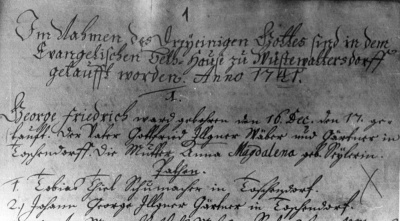 1
Im Nahmen des Dreyeinigen Gottes sind in dem
Evangelischen Beth-Hause zu Wüstewaltersdorff
getaufft worden. Anno 1741.
1.
George Friedrich ward gebohren den 16 Dec. den 17. ge-
taufft. Der Vater Gottfried Illgner Wäber und Gärtner in
Toschendorff. Die Mutter Anna Magdalena geb.
Pathen.
1. Tobias Thiel Schumacher in Toschendorf.
2. Johann George Illgner Gärtner in Toschendorf.